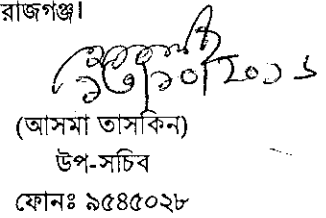 রাজগঞ্জ।
(আসমা তাসকিন)
উপ-সচিব
ফোনঃ ৯৫৪৫০২৮